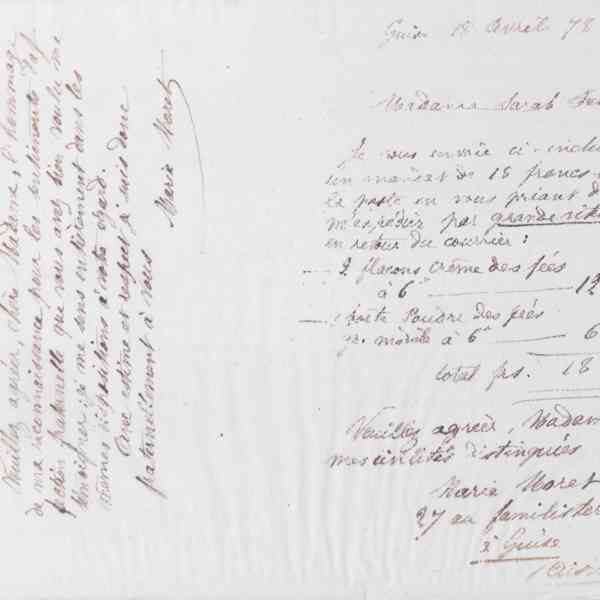 Guise 18 avril 78
Madame Sarah
Je vous envoie ci-inclu
un mandat de 18 francs
la poste en vous priant d
m'expédier par grande vite
en retour du courrier :
2 flacons crême des fées
à 6" 12
boîte Poudre des fées
gd. modèle à 6" 6
total frs. 18
Veuillez agréer, Madam
mes civilités distinguées
Marie Moret
27 au familistère
à Guise
Aisn
Veuillez agréer, chère Madame, l'hommage
de ma reconnaissance pour les sentiments d'af
fection fraternelle que vous avez bien voulu me
témoigner. Je me sens entièrement dans les
mêmes dispositions à votre égard.
Avec estime et respect je suis donc
fraternellement à vous
Marie Moret